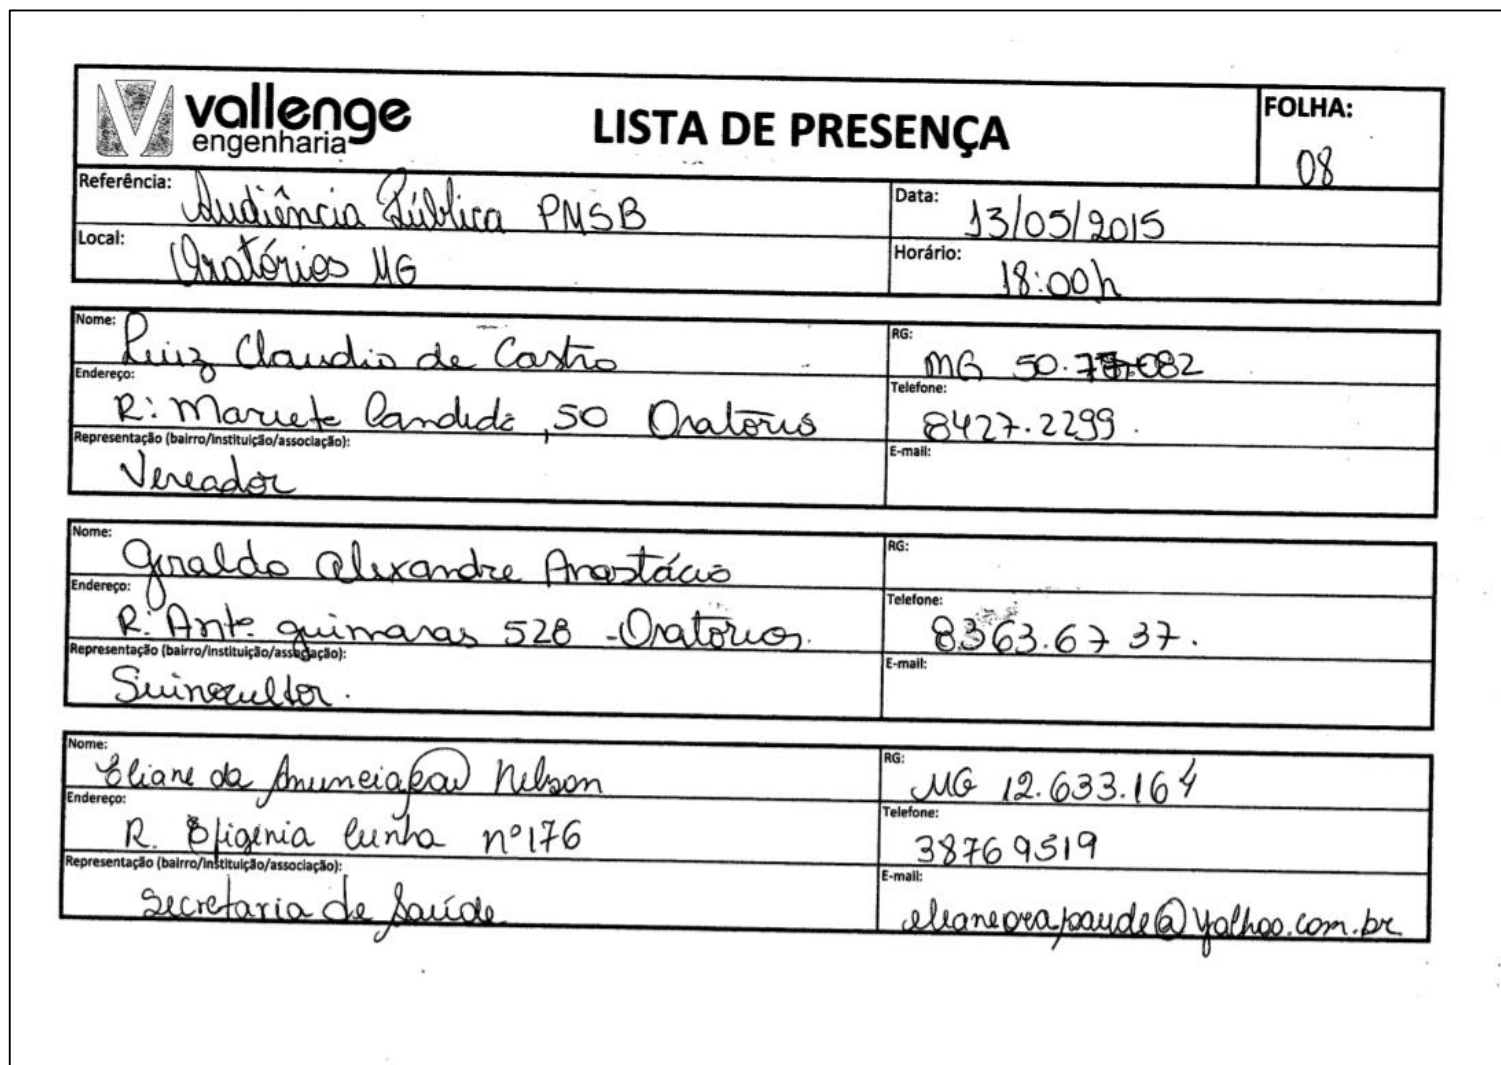 vallenge
engenharia
LISTA DE PRESENÇA
FOLHA:
08
Referência: Audiência Pública PMSB
Data: 13/05/2015
Local: Oratórios MG
Horário: 18:00h
Nome: Luiz Claudio de Castro
RG: MG 50. 082
Endereço: R: Mariete Candida, 50 Oratórios
Telefone: 8427.2299.
Representação (bairro/instituição/associação): Vereador
E-mail:
Nome: Geraldo Alexandre Anastácio
RG:
Endereço: R: Antº guimaras 528 - Oratórios.
Telefone: 8363.67 37.
Representação (bairro/instituição/associação): Suinocultor.
E-mail:
Nome: Eliane da Anunciação Nelson
RG: MG 12.633.164
Endereço: R. Efigênia Cunha nº176
Telefone: 3876 9519
Representação (bairro/instituição/associação): Secretaria de Saúde
E-mail: